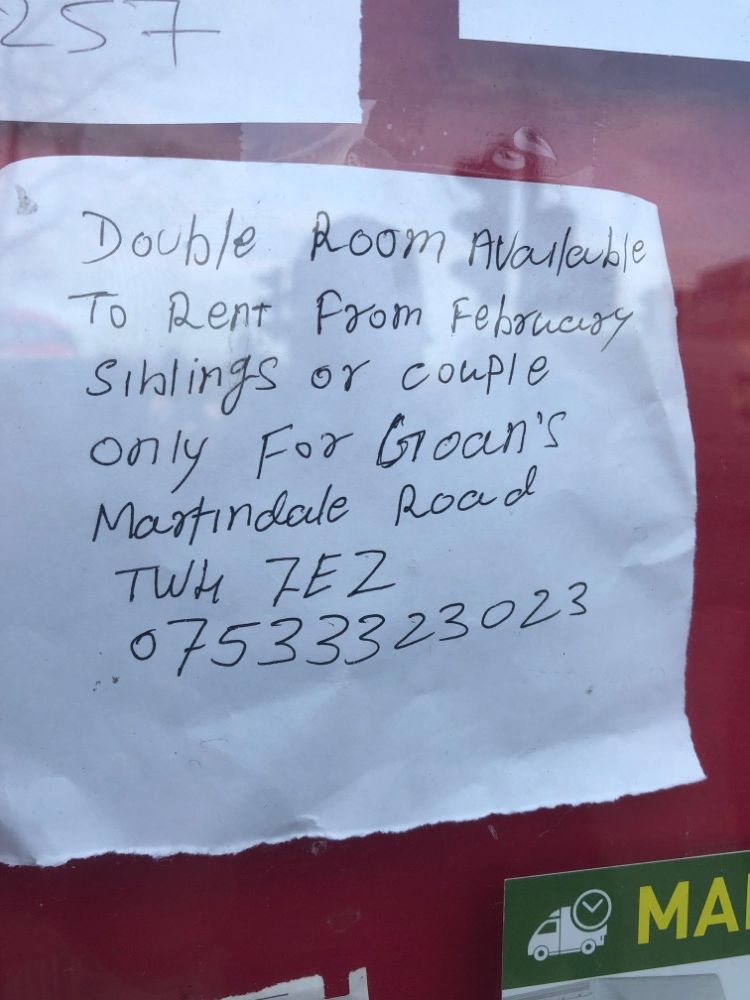 257
Double Room Available
To Rent From February
Siblings or couple
only For Goan's
Martindale Road
TW4 7EZ
07533323023
MA